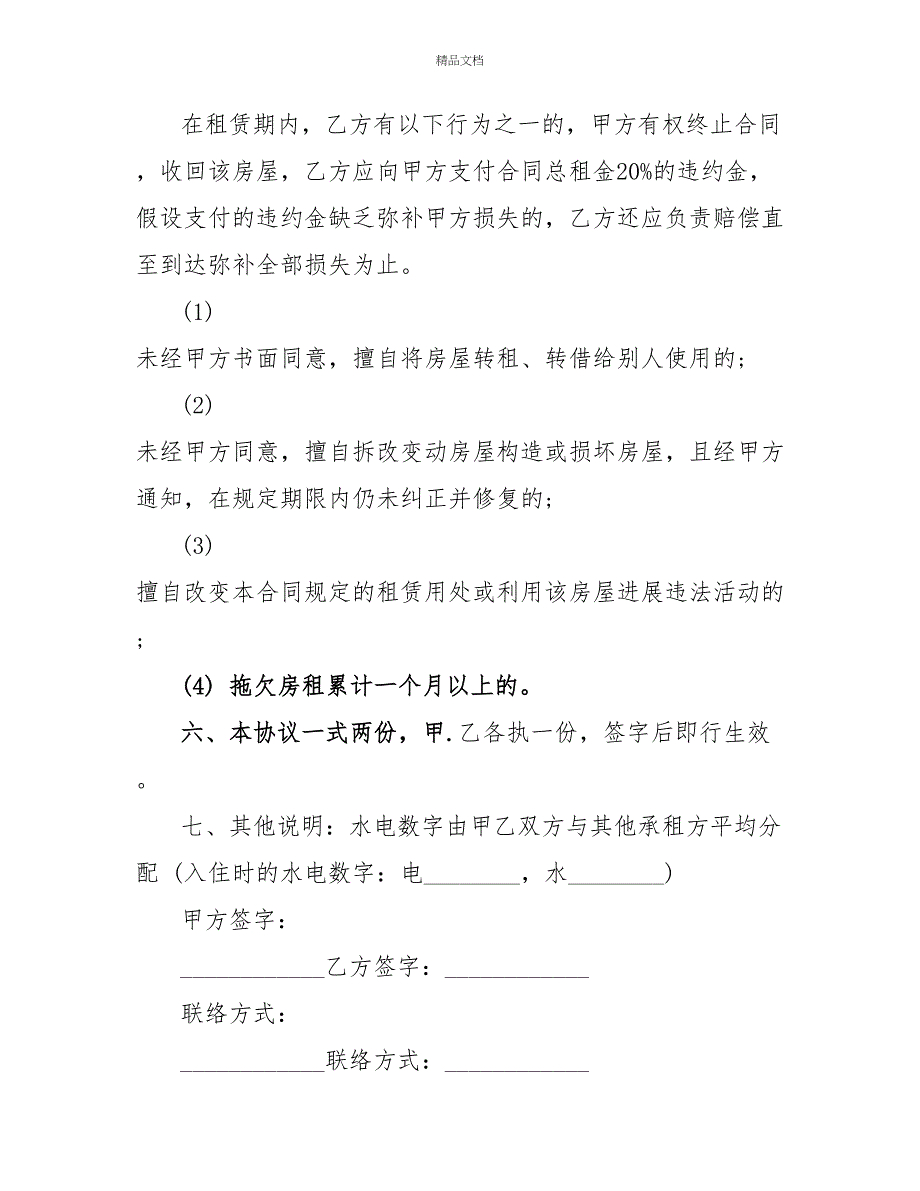 精品文档
在租赁期内，乙方有以下行为之一的，甲方有权终止合同
，收回该房屋，乙方应向甲方支付合同总租金20%的违约金，
假设支付的违约金缺乏弥补甲方损失的，乙方还应负责赔偿直
至到达弥补全部损失为止。
(1)
未经甲方书面同意，擅自将房屋转租、转借给别人使用的;
(2)
未经甲方同意，擅自拆改变动房屋构造或损坏房屋，且经甲方
通知，在规定期限内仍未纠正并修复的;
(3)
擅自改变本合同规定的租赁用处或利用该房屋进展违法活动的
;
(4) 拖欠房租累计一个月以上的。
六、本协议一式两份，甲.乙各执一份，签字后即行生效
。
七、其他说明：水电数字由甲乙双方与其他承租方平均分
配 (入住时的水电数字：电________，水________)
甲方签字：
____________乙方签字：____________
联络方式：
____________联络方式：____________